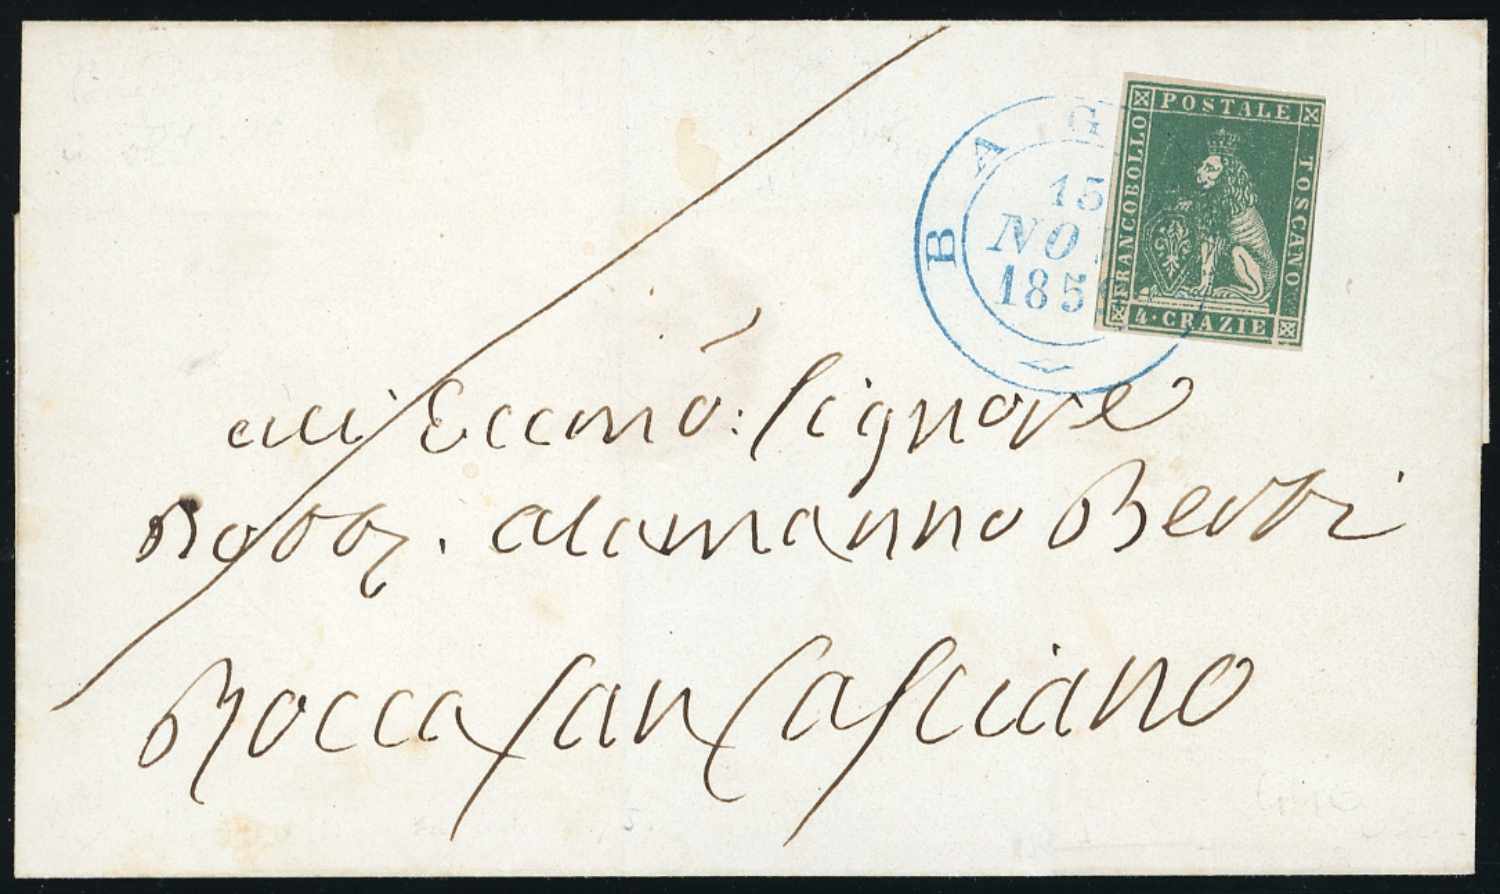 POSTALE
FRANCOBOLLO
TOSCANO
4·CRAZIE
BAG
15
NO
185
all' Eccmo: Signore
Alamanno Berti
Rocca San Casciano